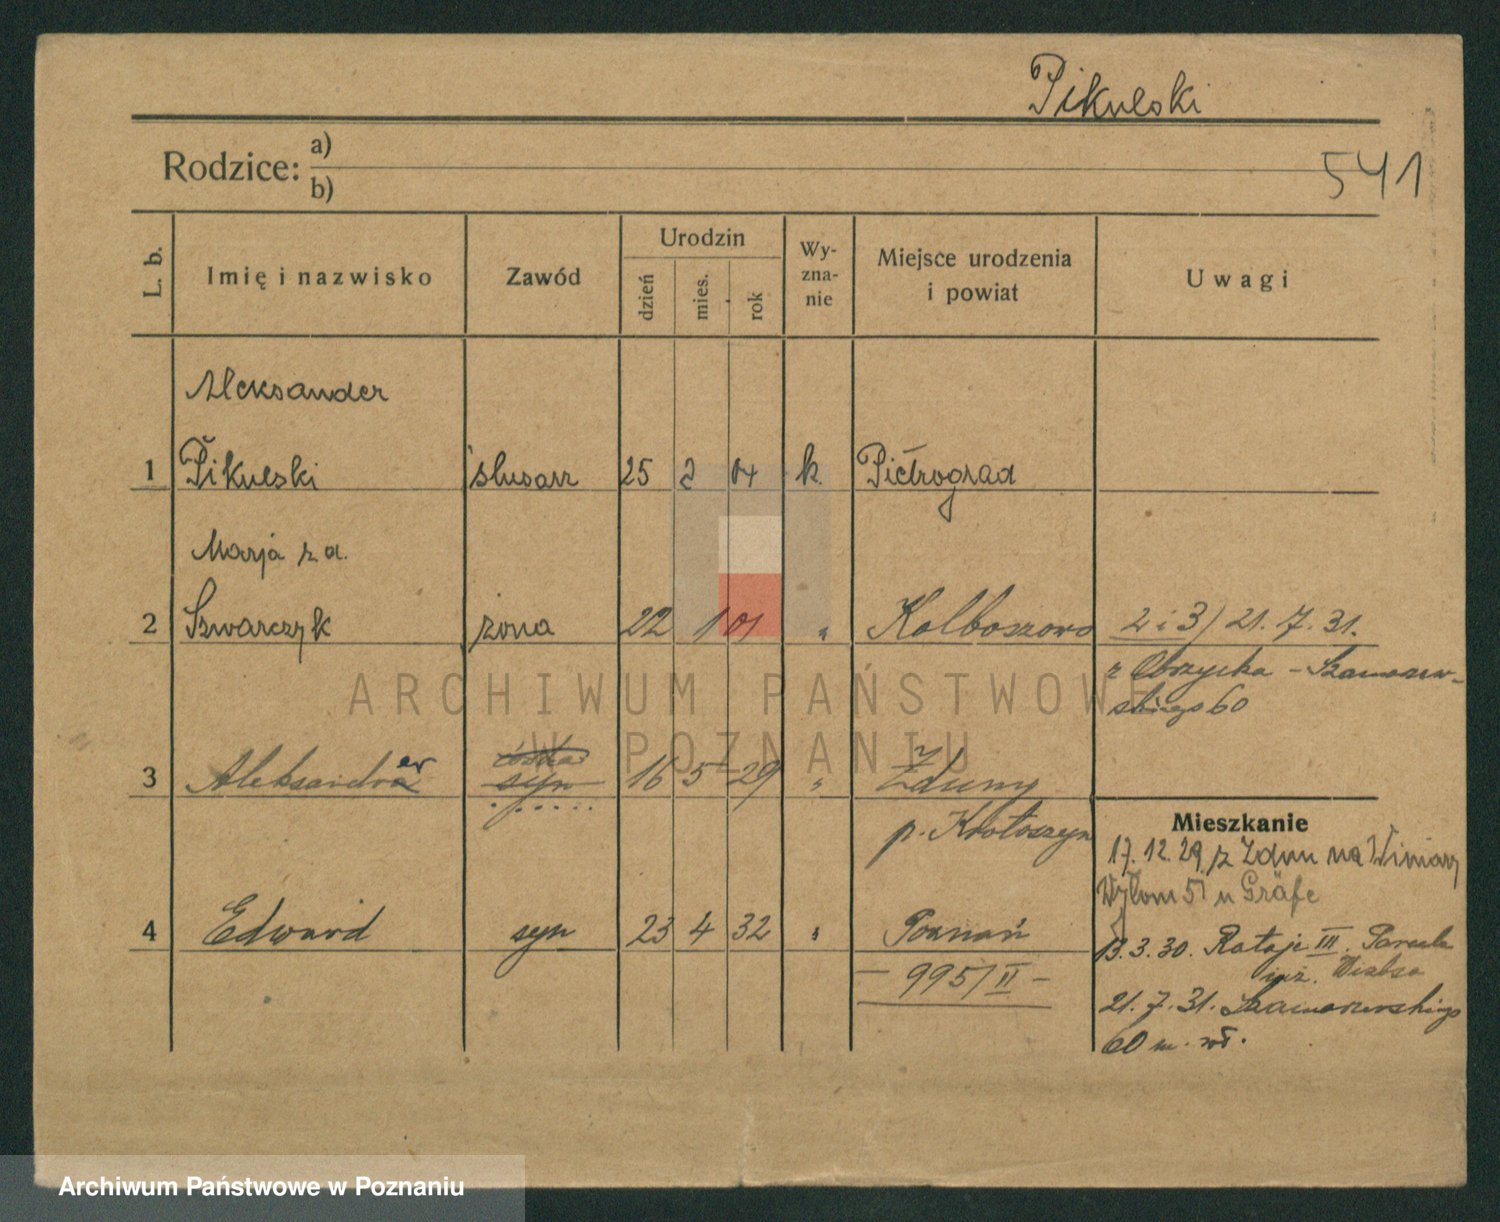 Pikulski
541
Rodzice: a)
b)
L. b.
Imię i nazwisko
Zawód
Urodzin
dzień
mies.
rok
Wy-
zna-
nie
Miejsce urodzenia
i powiat
Uwagi
Aleksander
1 Pikulski ślusarz 25 2 04 k. Piotrograd
Marja z d.
2 Szwarczyk żona 22 1 01 " Kolbuszowo 2 i 3) 21. 7. 31.
z Obrzycka - Szamarzew-
skiego 60
córka
3 Aleksander syn 16 5 29 " Zduny
p. Krotoszyn
Mieszkanie
17. 12. 29. z Zdun na Winiary
Wyłom 5 u Gräfe
4 Edward syn 23 4 32 " Poznań
13. 3. 30. Rataje III.
- 995/II -
21. 7. 31. Szamarzewskiego
60 m. wł.
ARCHIWUM PAŃSTWOWE
W POZNANIU
Archiwum Państwowe w Poznaniu